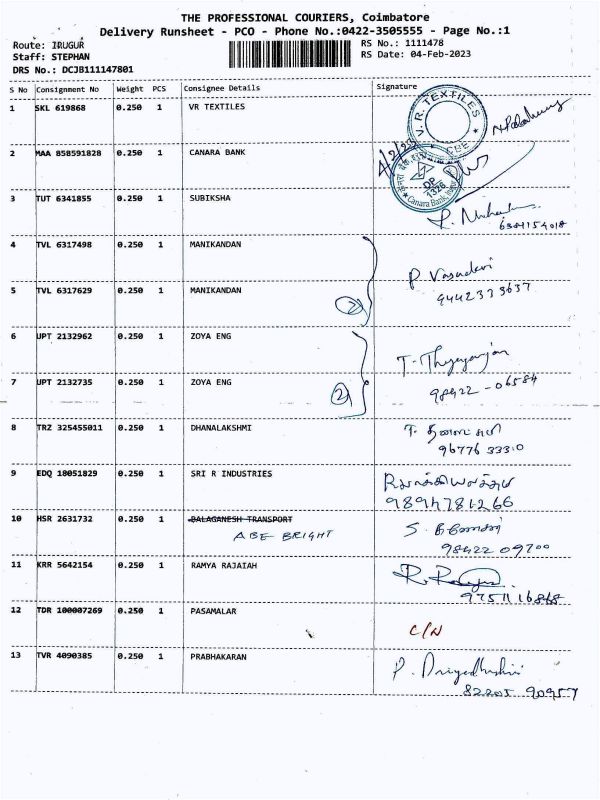 THE PROFESSIONAL COURIERS, Coimbatore
Delivery Runsheet - PCO - Phone No.:0422-3505555 - Page No.:1
Route: IRUGUR RS No.: 1111478
Staff: STEPHAN RS Date: 04-Feb-2023
DRS No.: DCJB111147801
S No Consignment No Weight PCS Consignee Details Signature
1 SKL 619868 0.250 1 VR TEXTILES V.R. TEXTILES
4/2/23
2 MAA 858591828 0.250 1 CANARA BANK DP 1326 Canara Bank
3 TUT 6341855 0.250 1 SUBIKSHA
6384154018
4 TVL 6317498 0.250 1 MANIKANDAN P Vasudevi
5 TVL 6317629 0.250 1 MANIKANDAN 2 9442333637
6 UPT 2132962 0.250 1 ZOYA ENG T. Thyagarajan
7 UPT 2132735 0.250 1 ZOYA ENG 2 98422-06584
8 TRZ 325455011 0.250 1 DHANALAKSHMI
96776 33310
9 EDQ 18051829 0.250 1 SRI R INDUSTRIES
9894781266
10 HSR 2631732 0.250 1 BALAGANESH TRANSPORT
ABE BRIGHT 98422 09700
11 KRR 5642154 0.250 1 RAMYA RAJAIAH
9751116868
12 TDR 100007269 0.250 1 PASAMALAR
C/N
13 TVR 4090385 0.250 1 PRABHAKARAN P. Priyadharshini
82205 90957